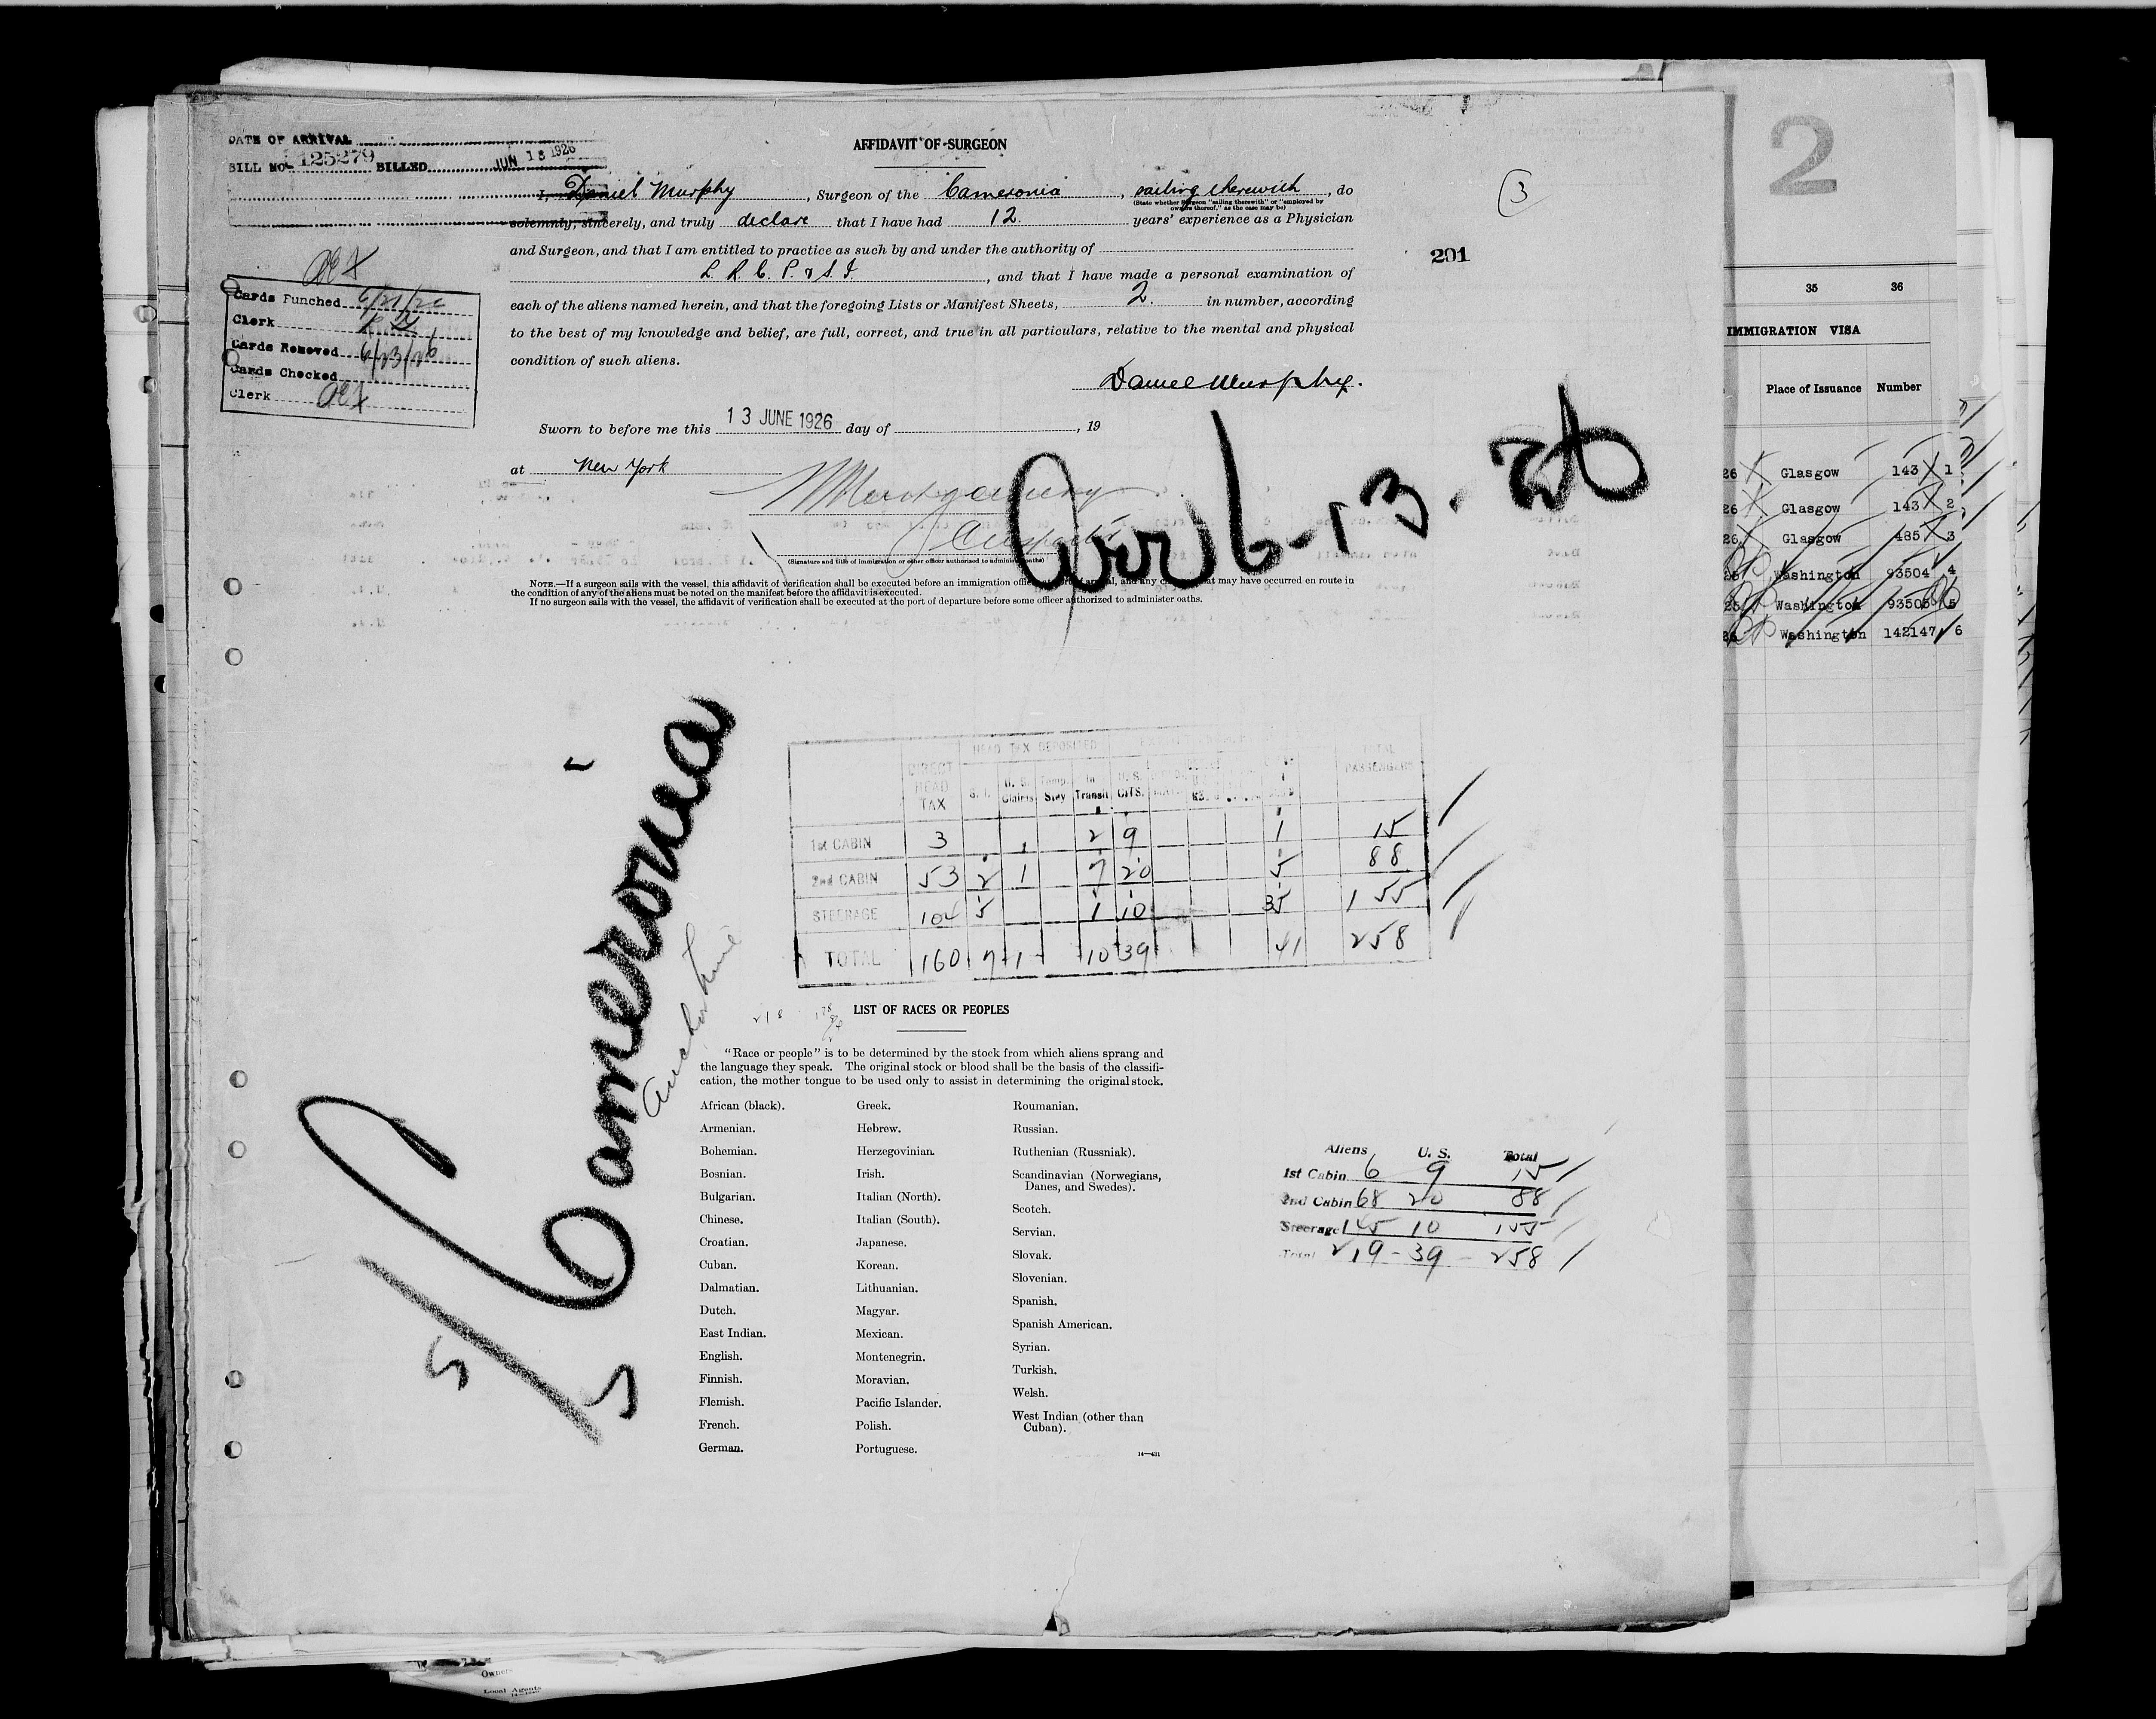 DATE OF ARRIVAL
BILL NO 125279 BILLED JUN 13 1926
AFFIDAVIT OF SURGEON
3
I, Daniel Murphy, Surgeon of the Cameronia, sailing therewith, do
(State whether Surgeon "sailing therewith" or "employed by
owners thereof," as the case may be)
solemnly, sincerely, and truly declare that I have had 12 years' experience as a Physician
and Surgeon, and that I am entitled to practice as such by and under the authority of
L. R. C. P. & S. I., and that I have made a personal examination of
each of the aliens named herein, and that the foregoing Lists or Manifest Sheets, 2. in number, according
to the best of my knowledge and belief, are full, correct, and true in all particulars, relative to the mental and physical
condition of such aliens.
Daniel Murphy.
201
Cards Punched 6/21/26
Clerk
Cards Removed 6/23/26
Cards Checked
Clerk
Sworn to before me this 13 JUNE 1926 day of , 19
at New York
Arr 6-13-26
(Signature and title of immigration or other officer authorized to administer oaths)
NOTE.—If a surgeon sails with the vessel, this affidavit of verification shall be executed before an immigration officer at port of arrival, and any change that may have occurred en route in
the condition of any of the aliens must be noted on the manifest before the affidavit is executed.
If no surgeon sails with the vessel, the affidavit of verification shall be executed at the port of departure before some officer authorized to administer oaths.
S/S Cameronia
Anchor Line
HEAD TAX DEPOSITED
DIRECT HEAD TAX S. I. U. S. Claims Temp. Stay In Transit U. S. CITS. TOTAL PASSENGERS
1st CABIN 3 2 9 1 15
2nd CABIN 53 2 1 7 20 5 88
STEERAGE 104 5 1 10 35 155
TOTAL 160 7 1 10 39 41 258
LIST OF RACES OR PEOPLES
"Race or people" is to be determined by the stock from which aliens sprang and
the language they speak. The original stock or blood shall be the basis of the classifi-
cation, the mother tongue to be used only to assist in determining the original stock.
African (black).
Armenian.
Bohemian.
Bosnian.
Bulgarian.
Chinese.
Croatian.
Cuban.
Dalmatian.
Dutch.
East Indian.
English.
Finnish.
Flemish.
French.
German.
Greek.
Hebrew.
Herzegovinian.
Irish.
Italian (North).
Italian (South).
Japanese.
Korean.
Lithuanian.
Magyar.
Mexican.
Montenegrin.
Moravian.
Pacific Islander.
Polish.
Portuguese.
Roumanian.
Russian.
Ruthenian (Russniak).
Scandinavian (Norwegians,
Danes, and Swedes).
Scotch.
Servian.
Slovak.
Slovenian.
Spanish.
Spanish American.
Syrian.
Turkish.
Welsh.
West Indian (other than
Cuban).
14—431
Aliens U. S. Total
1st Cabin 6 9 15
2nd Cabin 68 20 88
Steerage 145 10 155
Total 219 - 39 - 258
2
35 36
IMMIGRATION VISA
Place of Issuance Number
26 Glasgow 143 1
26 Glasgow 143 2
26 Glasgow 485 3
Washington 93504 4
25 Washington 93505 5
Washington 142147 6
Owners
Local Agents